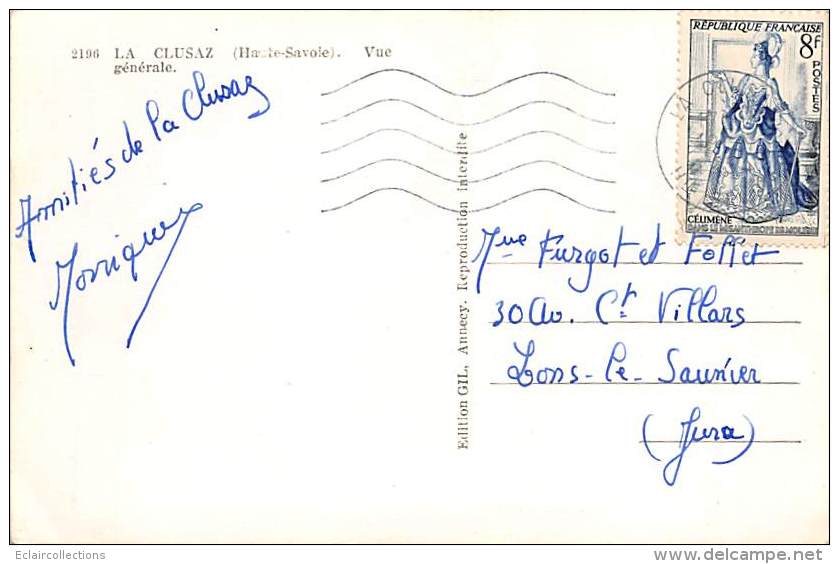 2196 LA CLUSAZ (Haute-Savoie). Vue
générale.
Amitiés de la Clusaz
Monique
Edition GIL, Annecy. Reproduction interdite
RÉPUBLIQUE FRANÇAISE
8f
POSTES
CÉLIMÈNE
DANS LE MISANTHROPE DE MOLIÈRE
LA
Mme Furgot et Follet
30 Av. Ct Villars
Lons-le-Saunier
(Jura)
Eclaircollections
delcampe.net